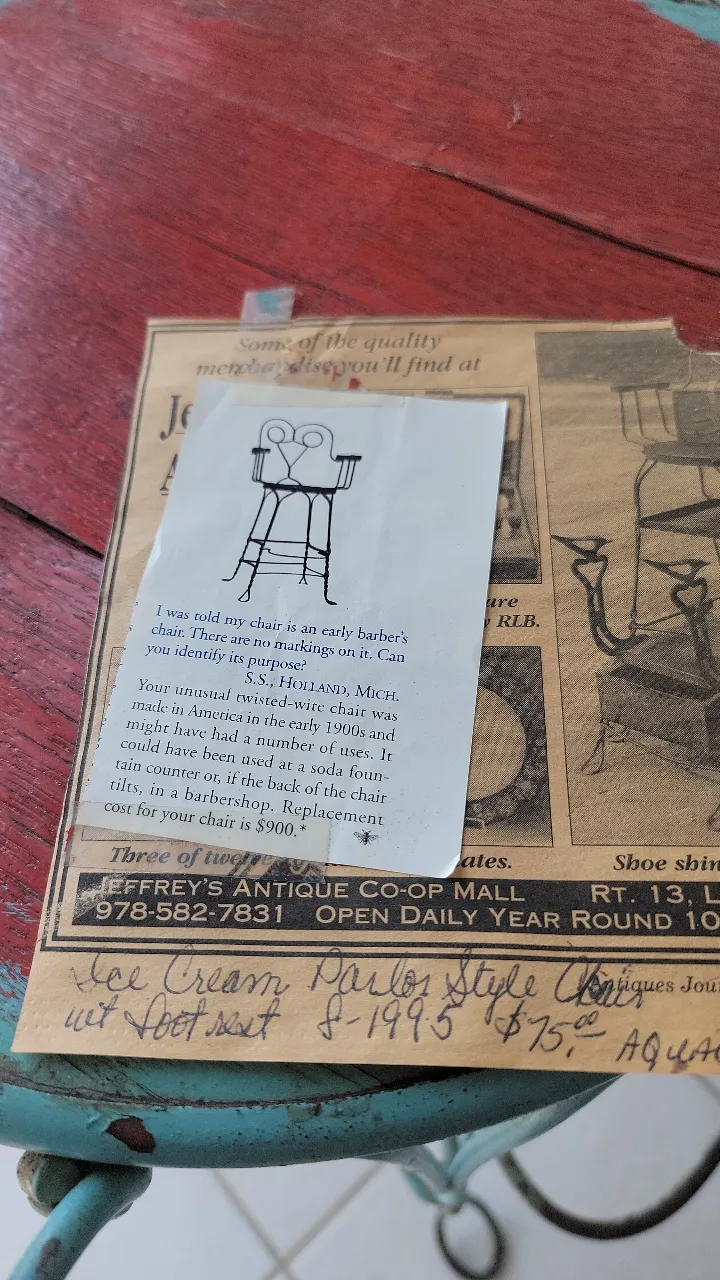 Some of the quality
merchandise you'll find at
Je
A
are
y RLB.
I was told my chair is an early barber's
chair. There are no markings on it. Can
you identify its purpose?
S.S., HOLLAND, MICH.
Your unusual twisted-wire chair was
made in America in the early 1900s and
might have had a number of uses. It
could have been used at a soda foun-
tain counter or, if the back of the chair
tilts, in a barbershop. Replacement
cost for your chair is $900.*
Three of twe
ates.
Shoe shin
JEFFREY'S ANTIQUE CO-OP MALL RT. 13, L
978-582-7831 OPEN DAILY YEAR ROUND 10
Antiques Jou
Ice Cream Parlor Style Chair
wt Foot rest 8-1995 $75.00 AQUA